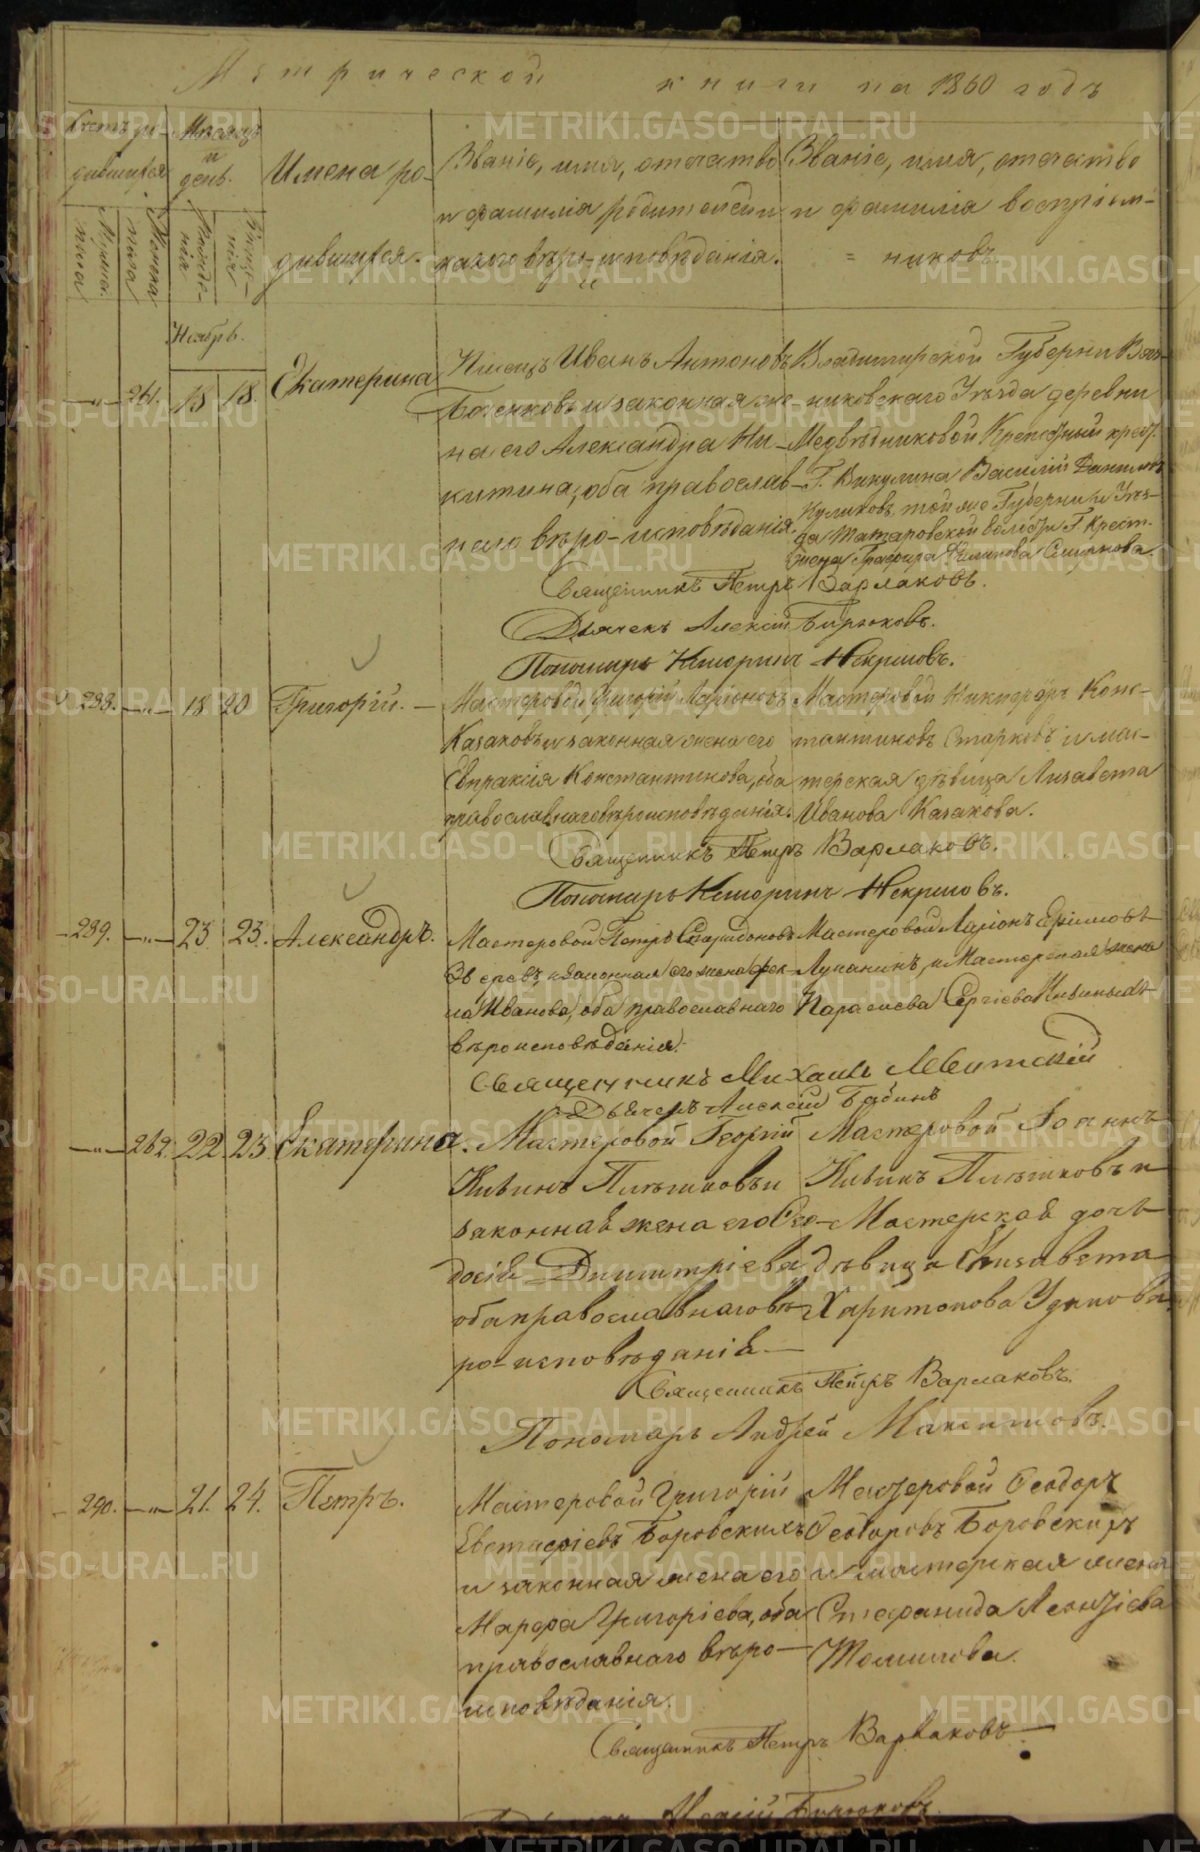 Метрической книги на 1860 годъ
Счетъ ро-
дившихся
Мѣсяцъ
и
день.
Имена ро-
дившихся.
Званіе, имя, отчество
и фамилія родителей и
какого вѣро-исповѣданія.
Званіе, имя, отчество
и фамилія воспріем-
= никовъ.
Мужеска
Женска
Ноябрь.
261. 15 18. Екатерина
Писецъ Иванъ Антоновъ
и законная же
на его Александра Ни-
китина, оба православ-
наго вѣро-исповѣданія.
Владимирской Губерни Вяз-
никовскаго Уѣзда деревни
Медвѣдниковой
Г. Викулина Василій Даниловъ
Куликовъ той же Губерни и Уѣз-
да Татаровской волости Г. Крест.
Смирнова
Священникъ Петръ Варлаковъ.
Дьячекъ Алексій Бирюковъ.
Пономарь Некрасовъ.
288. 18 20 Григорій.
Мастеровой Григорій Ларіоновъ
Казаковъ и законная жена его
Евпраксія Константинова, оба
православнаго вѣроисповѣданія.
Мастеровой Никифоръ Конс-
тантиновъ Старковъ и мас-
терская дѣвица Лизавета
Иванова Казакова.
Священникъ Петръ Варлаковъ.
Пономарь Некрасовъ.
289. 23 23. Александръ.
Мастеровой Петръ Спиридоновъ
Зверевъ, и законная его жена Фек-
ла Иванова, оба православнаго
вѣроисповѣданія.
Мастеровой Ларіонъ Ефимовъ
Лупанинъ, и Мастерская жена
Параскева Сергіева
Священникъ Михаилъ Левитскій
Дьячекъ Алексій Бабинъ
262. 22 23 Екатерина.
Мастеровой Георгій
Кивинъ Плѣшковъ и
законная жена его Ѳео-
досія Димитріева
оба православнаго вѣ-
ро-исповѣданія
Мастеровой Іоаннъ
Кивинъ Плѣшковъ и
Мастерская дочь
дѣвица Елизавета
Харитонова
Священникъ Петръ Варлаковъ.
Пономарь Андрей Макситовъ
290. 21. 24. Петръ.
Мастеровой Григорій
Евстафіевъ Боровскихъ
и законная жена его
Марфа Григоріева, оба
православнаго вѣро-
исповѣданія.
Мастеровой Ѳеодоръ
Ѳеодоровъ Боровскихъ
и мастерская жена
Стефанида Леонтіева
Томилова.
Священникъ Петръ Варлаковъ
Алексій Бирюковъ
METRIKI.GASO-URAL.RU